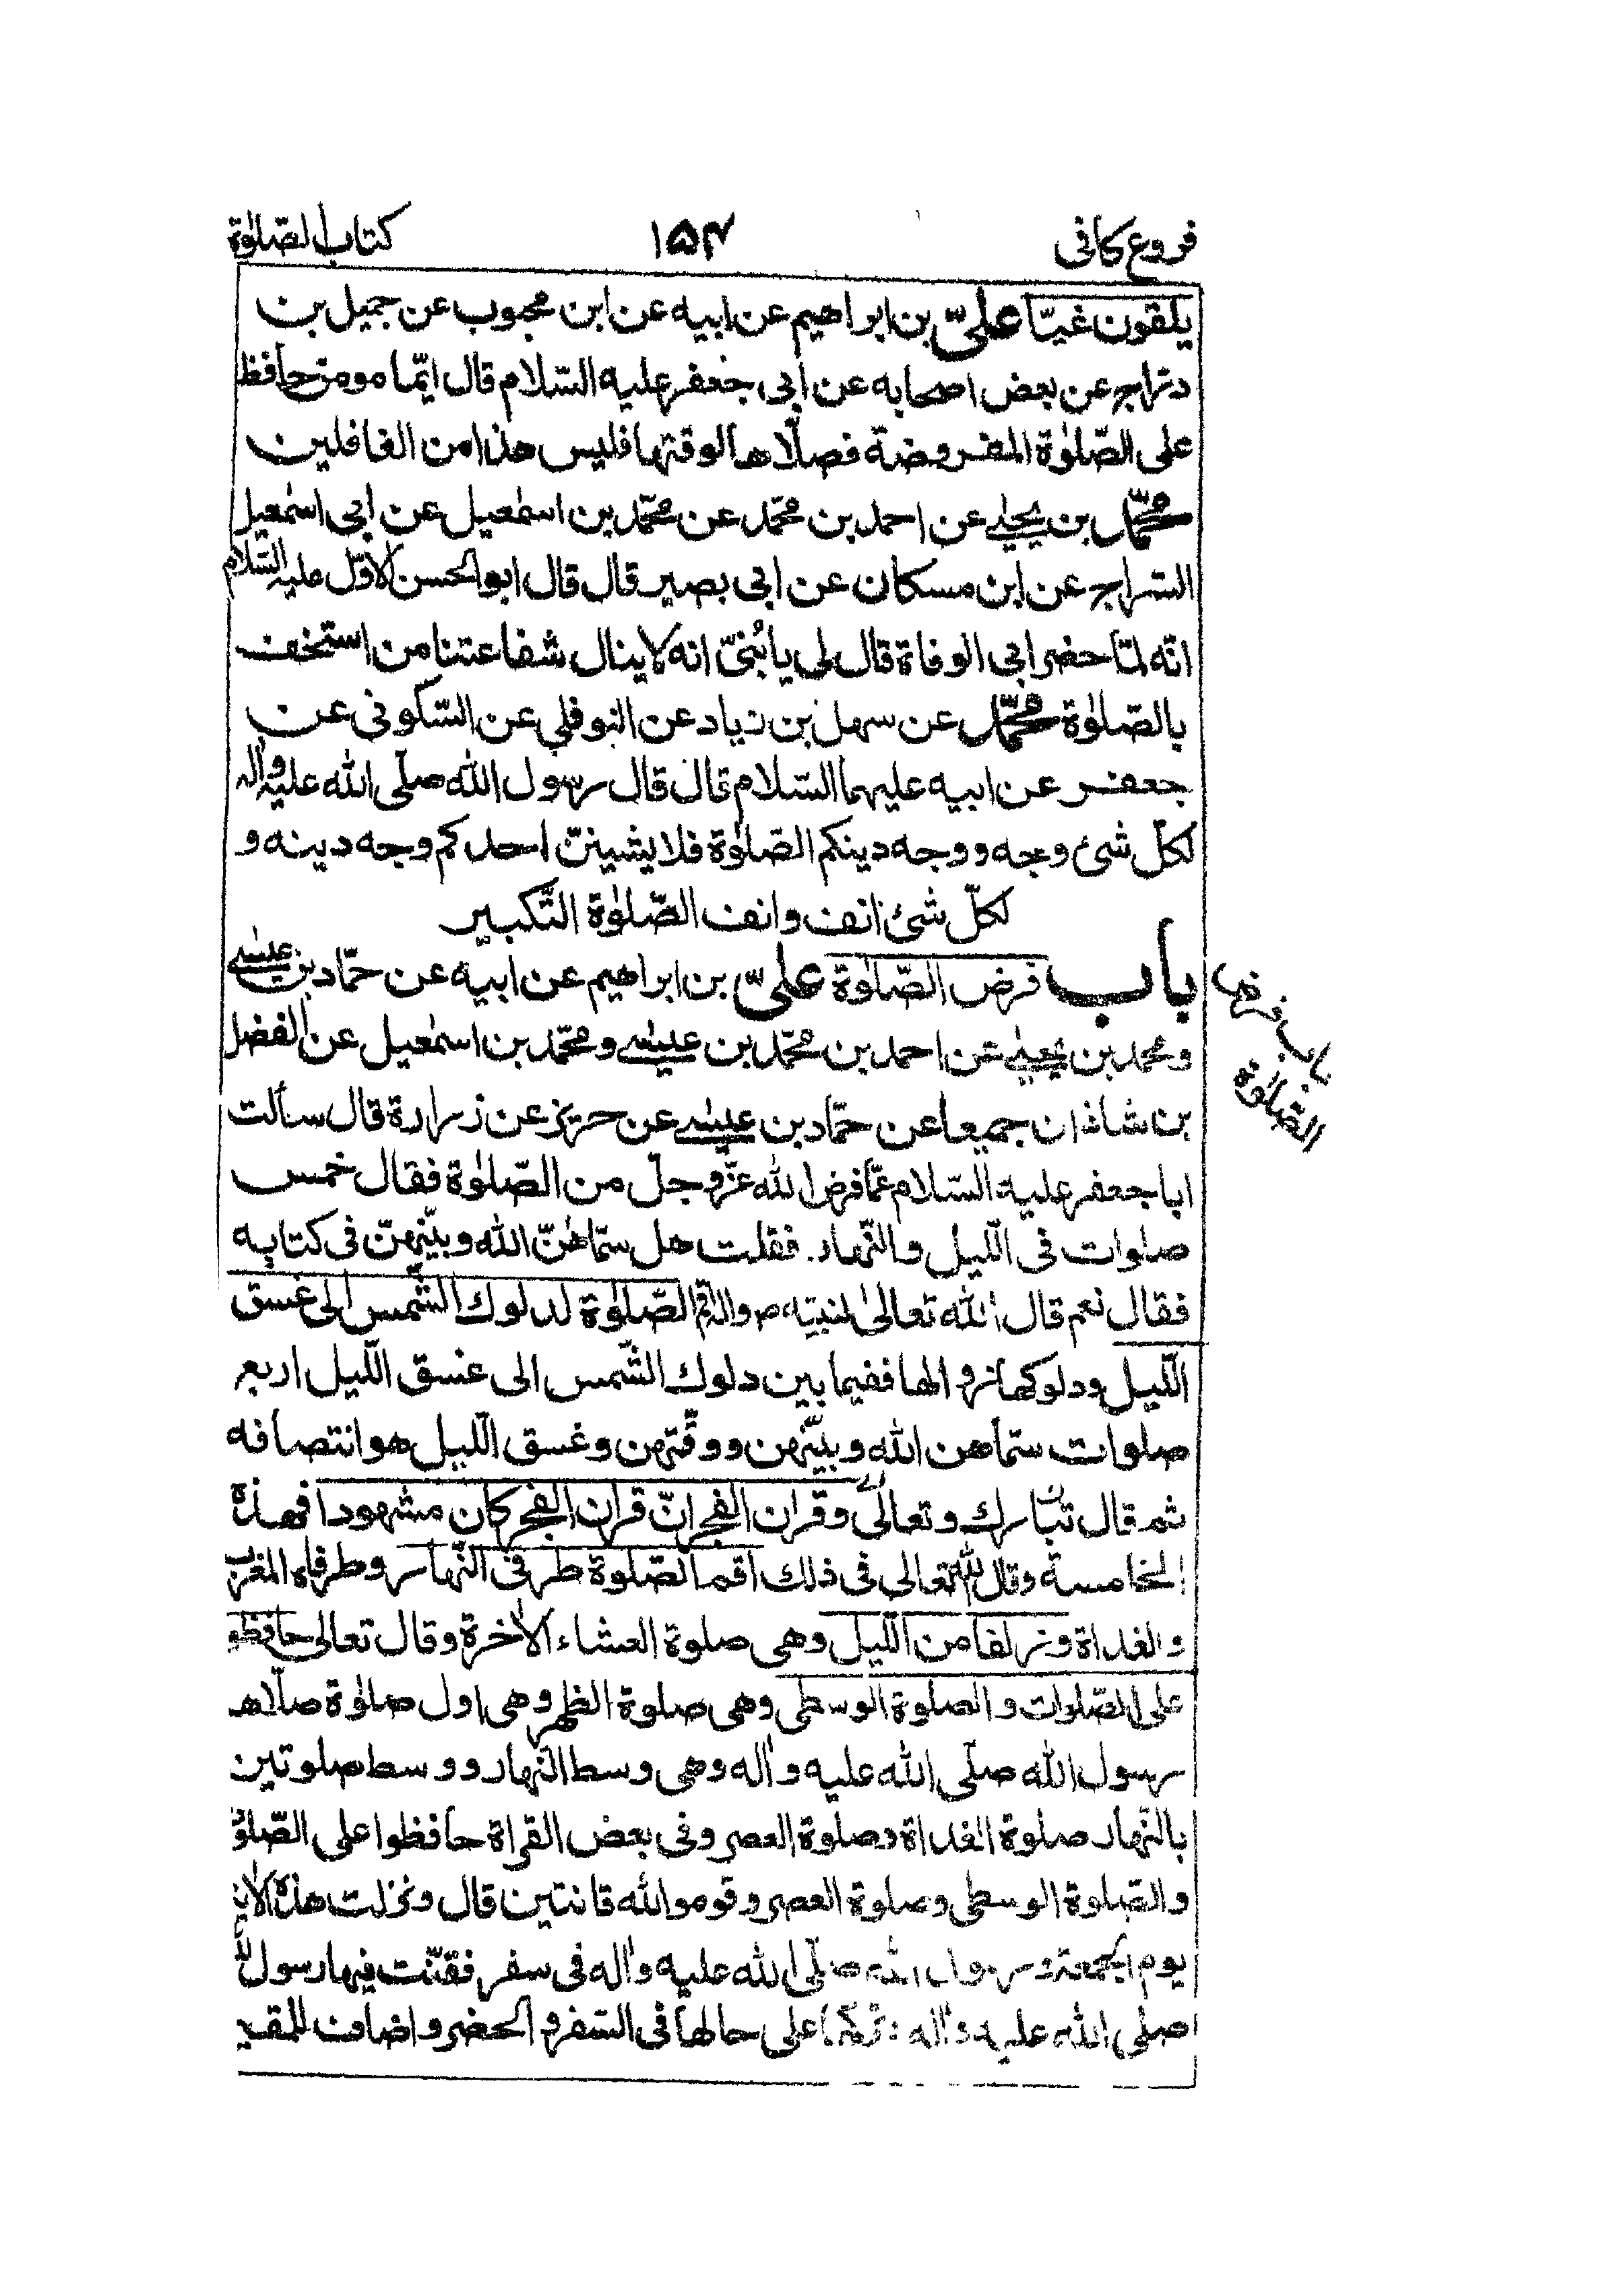 فروع كافى ١٥٤ كتاب الصّلوٰة
يلقون غيّا علىّ بن ابراهيم عن ابيه عن ابن محبوب عن جميل بن
درّاج عن بعض اصحابه عن ابى جعفر عليه السّلام قال ايّما مومن حافظ
على الصّلوٰة المفروضة فصلّاها لوقتها فليس هذا من الغافلين
محمّد بن يحيىٰ عن احمد بن محمّد عن محمّد بن اسمٰعيل عن ابى اسمٰعيل
السّراج عن ابن مسكان عن ابى بصير قال قال ابو الحسن الاوّل عليه السّلام
انّه لمّا حضر ابى الوفاة قال لى يا بُنىّ انه لا ينال شفاعتنا من استخف
بالصّلوٰة محمّد عن سهل بن زياد عن النوفلى عن السّكونى عن
جعفر عن ابيه عليهما السّلام قال قال رسول الله صلّى الله عليه واٰله
لكلّ شئ وجه ووجه دينكم الصّلوٰة فلا يشينّ احدكم وجه دينه و
لكلّ شئ انف وانف الصّلوٰة التّكبير
باب فرض الصّلوٰة علىّ بن ابراهيم عن ابيه عن حمّاد بن عيسىٰ
ومحمد بن يحيىٰ عن احمد بن محمّد بن عيسىٰ ومحمّد بن اسمٰعيل عن الفضل
بن شاذان جميعا عن حمّاد بن عيسىٰ عن حريز عن زرارة قال سألت
ابا جعفر عليه السّلام عمّا فرض الله عزّوجلّ من الصّلوٰة فقال خمس
صلوات فى اللّيل والنّهار. فقلت هل سمّاهنّ الله وبيّنهنّ فى كتابه
فقال نعم قال الله تعالىٰ لنبيّه ص واٰله اقم الصّلوٰة لدلوك الشّمس الى غسق
اللّيل ودلوكها زوالها ففيما بين دلوك الشّمس الى غسق اللّيل اربع
صلوات سمّاهن الله وبيّنهن ووقّتهن وغسق اللّيل هو انتصافه
ثم قال تبارك وتعالىٰ وقران الفجر انّ قران الفجر كان مشهودا فهذه
الخامسة وقال الله تعالى فى ذلك اقم الصّلوة طرفى النّهار وطرفاه المغرب
والغداة وزلفا من اللّيل وهى صلوة العشاء الاٰخرة وقال تعالى حافظو
على الصّلوات والصلوة الوسطى وهى صلوة الظهر وهى اول صلوٰة صلّاها
رسول الله صلّى الله عليه واٰله وهى وسط النّهار ووسط صلوتين
بالنّهار صلوة الغداة وصلوة العصر وفى بعض القراة حافظوا على الصّلوٰة
والصّلوة الوسطى وصلوة العصر وقوموا لله قانتين قال ونزلت هذه الاٰية
يوم الجمعة ورسول الله صلّى الله عليه واٰله فى سفر فقنّت فيها رسول الله
صلى الله عليه واٰله وتركها على حالها فى السّفر والحضر واضاف للمقيم
باب فرض
الصّلوٰة